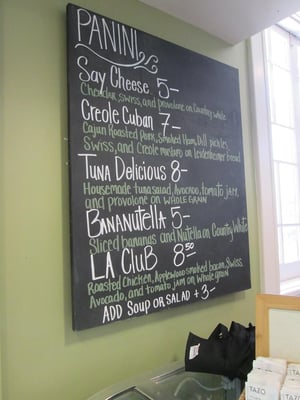 PANINI
Say Cheese 5-
Cheddar, swiss, and provolone on Country white
Creole Cuban 7-
Cajun Roasted Pork, Smoked Ham, Dill pickles,
Swiss, and Creole mustard on leidenheimer bread
Tuna Delicious 8-
Housemade tuna salad, Avocado, tomato jam,
and provolone on WHOLE GRAIN
BANANUtella 5-
Sliced bananas and Nutella on Country White
LA CluB 8.50
Roasted Chicken, Applewood smoked bacon, Swiss,
Avocado, and tomato jam on Whole grain
ADD SOUP OR SALAD + 3-
TAZO
TAZO